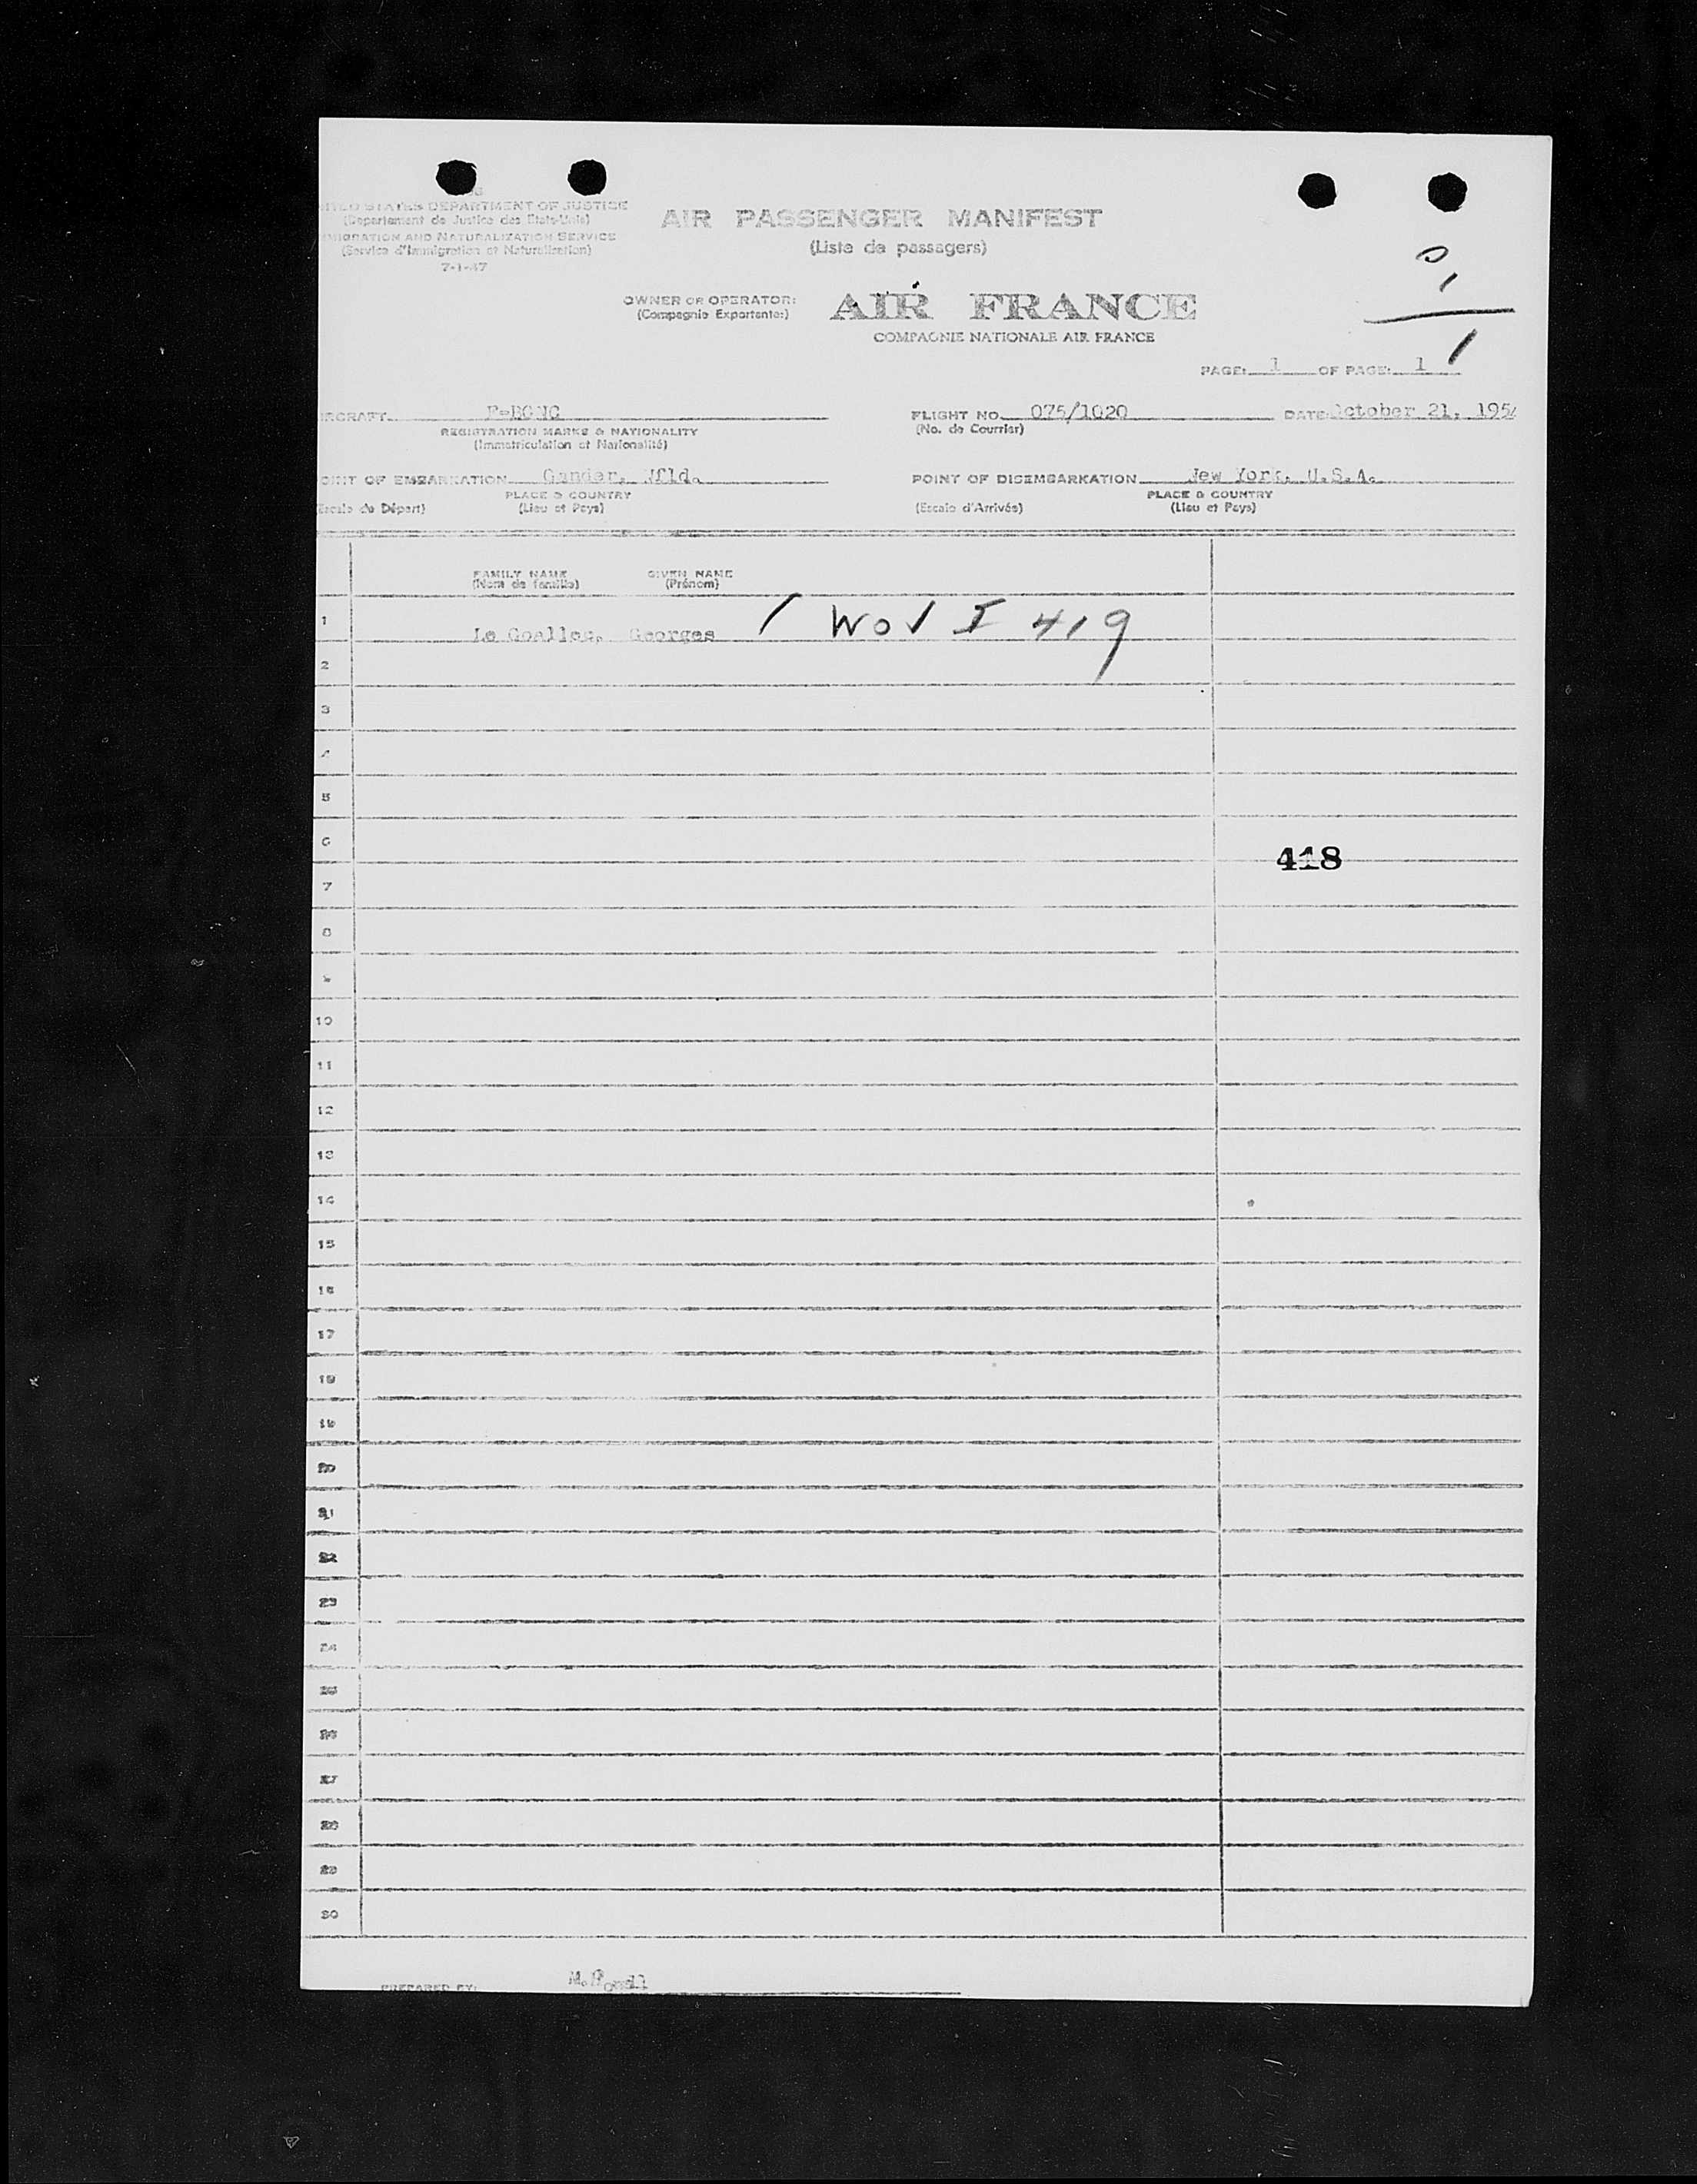 UNITED STATES DEPARTMENT OF JUSTICE
(Departement de Justice des Etats-Unis)
IMMIGRATION AND NATURALIZATION SERVICE
(Service d'Immigration et Naturalisation)
7-1-47
AIR PASSENGER MANIFEST
(Liste de passagers)
OWNER OR OPERATOR: AIR FRANCE
(Compagnie Exportante:)
COMPAGNIE NATIONALE AIR FRANCE
0
1
1
PAGE: 1 OF PAGE: 1
AIRCRAFT F-BGNC FLIGHT NO. 075/1020 DATE: October 21, 195
REGISTRATION MARKS & NATIONALITY (No. de Courrier)
(Immatriculation et Nationalité)
POINT OF EMBARKATION Gander, Nfld. POINT OF DISEMBARKATION New York, U.S.A.
PLACE & COUNTRY PLACE & COUNTRY
(Escale de Départ) (Lieu et Pays) (Escale d'Arrivée) (Lieu et Pays)
FAMILY NAME GIVEN NAME
(Nom de famille) (Prénom)
1 Le Goallec, Georges / WOV I 419
2
3
4
5
6
418
7
8
9
10
11
12
13
14
15
16
17
18
19
20
21
22
23
24
25
26
27
28
29
30
PREPARED BY: